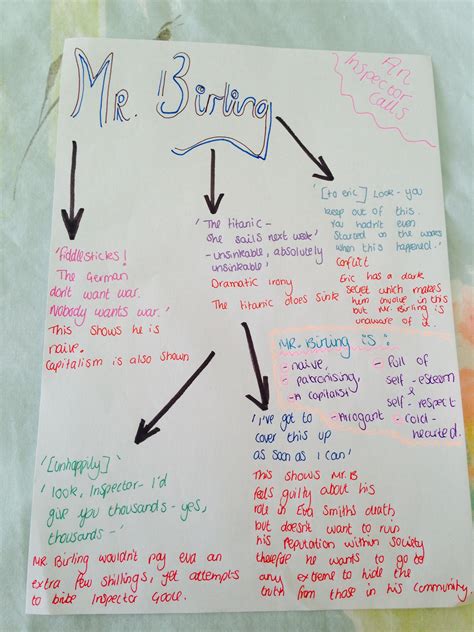 Mr. Birling
An
Inspector
Calls
'fiddlesticks!
The German
don't want war.
Nobody wants war.'
This shows he is
naive.
Capitalism is also shown
'The titanic -
she sails next week'
- unsinkable, absolutely
unsinkable'
Dramatic irony
The titanic does sink
'[to eric] Look - you
keep out of this.
You hadn't even
started on the works
when this happened.'
Conflict
Eric has a dark
secret which makes
him involve in this
but Mr. Birling is
unaware of it.
Mr. Birling is:
- naive,
- patronising,
- a capitalist
- arrogant
- full of
self-esteem
&
self-respect
- cold-
hearted.
'[unhappily]
'look, Inspector - I'd
give you thousands - yes,
thousands -'
Mr. Birling wouldn't pay eva an
extra few shillings, yet attempts
to bribe Inspector Goole.
'I've got to
cover this up
as soon as I can'
This shows Mr.B
feels guilty about his
role in Eva Smiths death
but doesn't want to ruin
his reputation within society
therefore he wants to go to
any extreme to hide the
truth from those in his community.